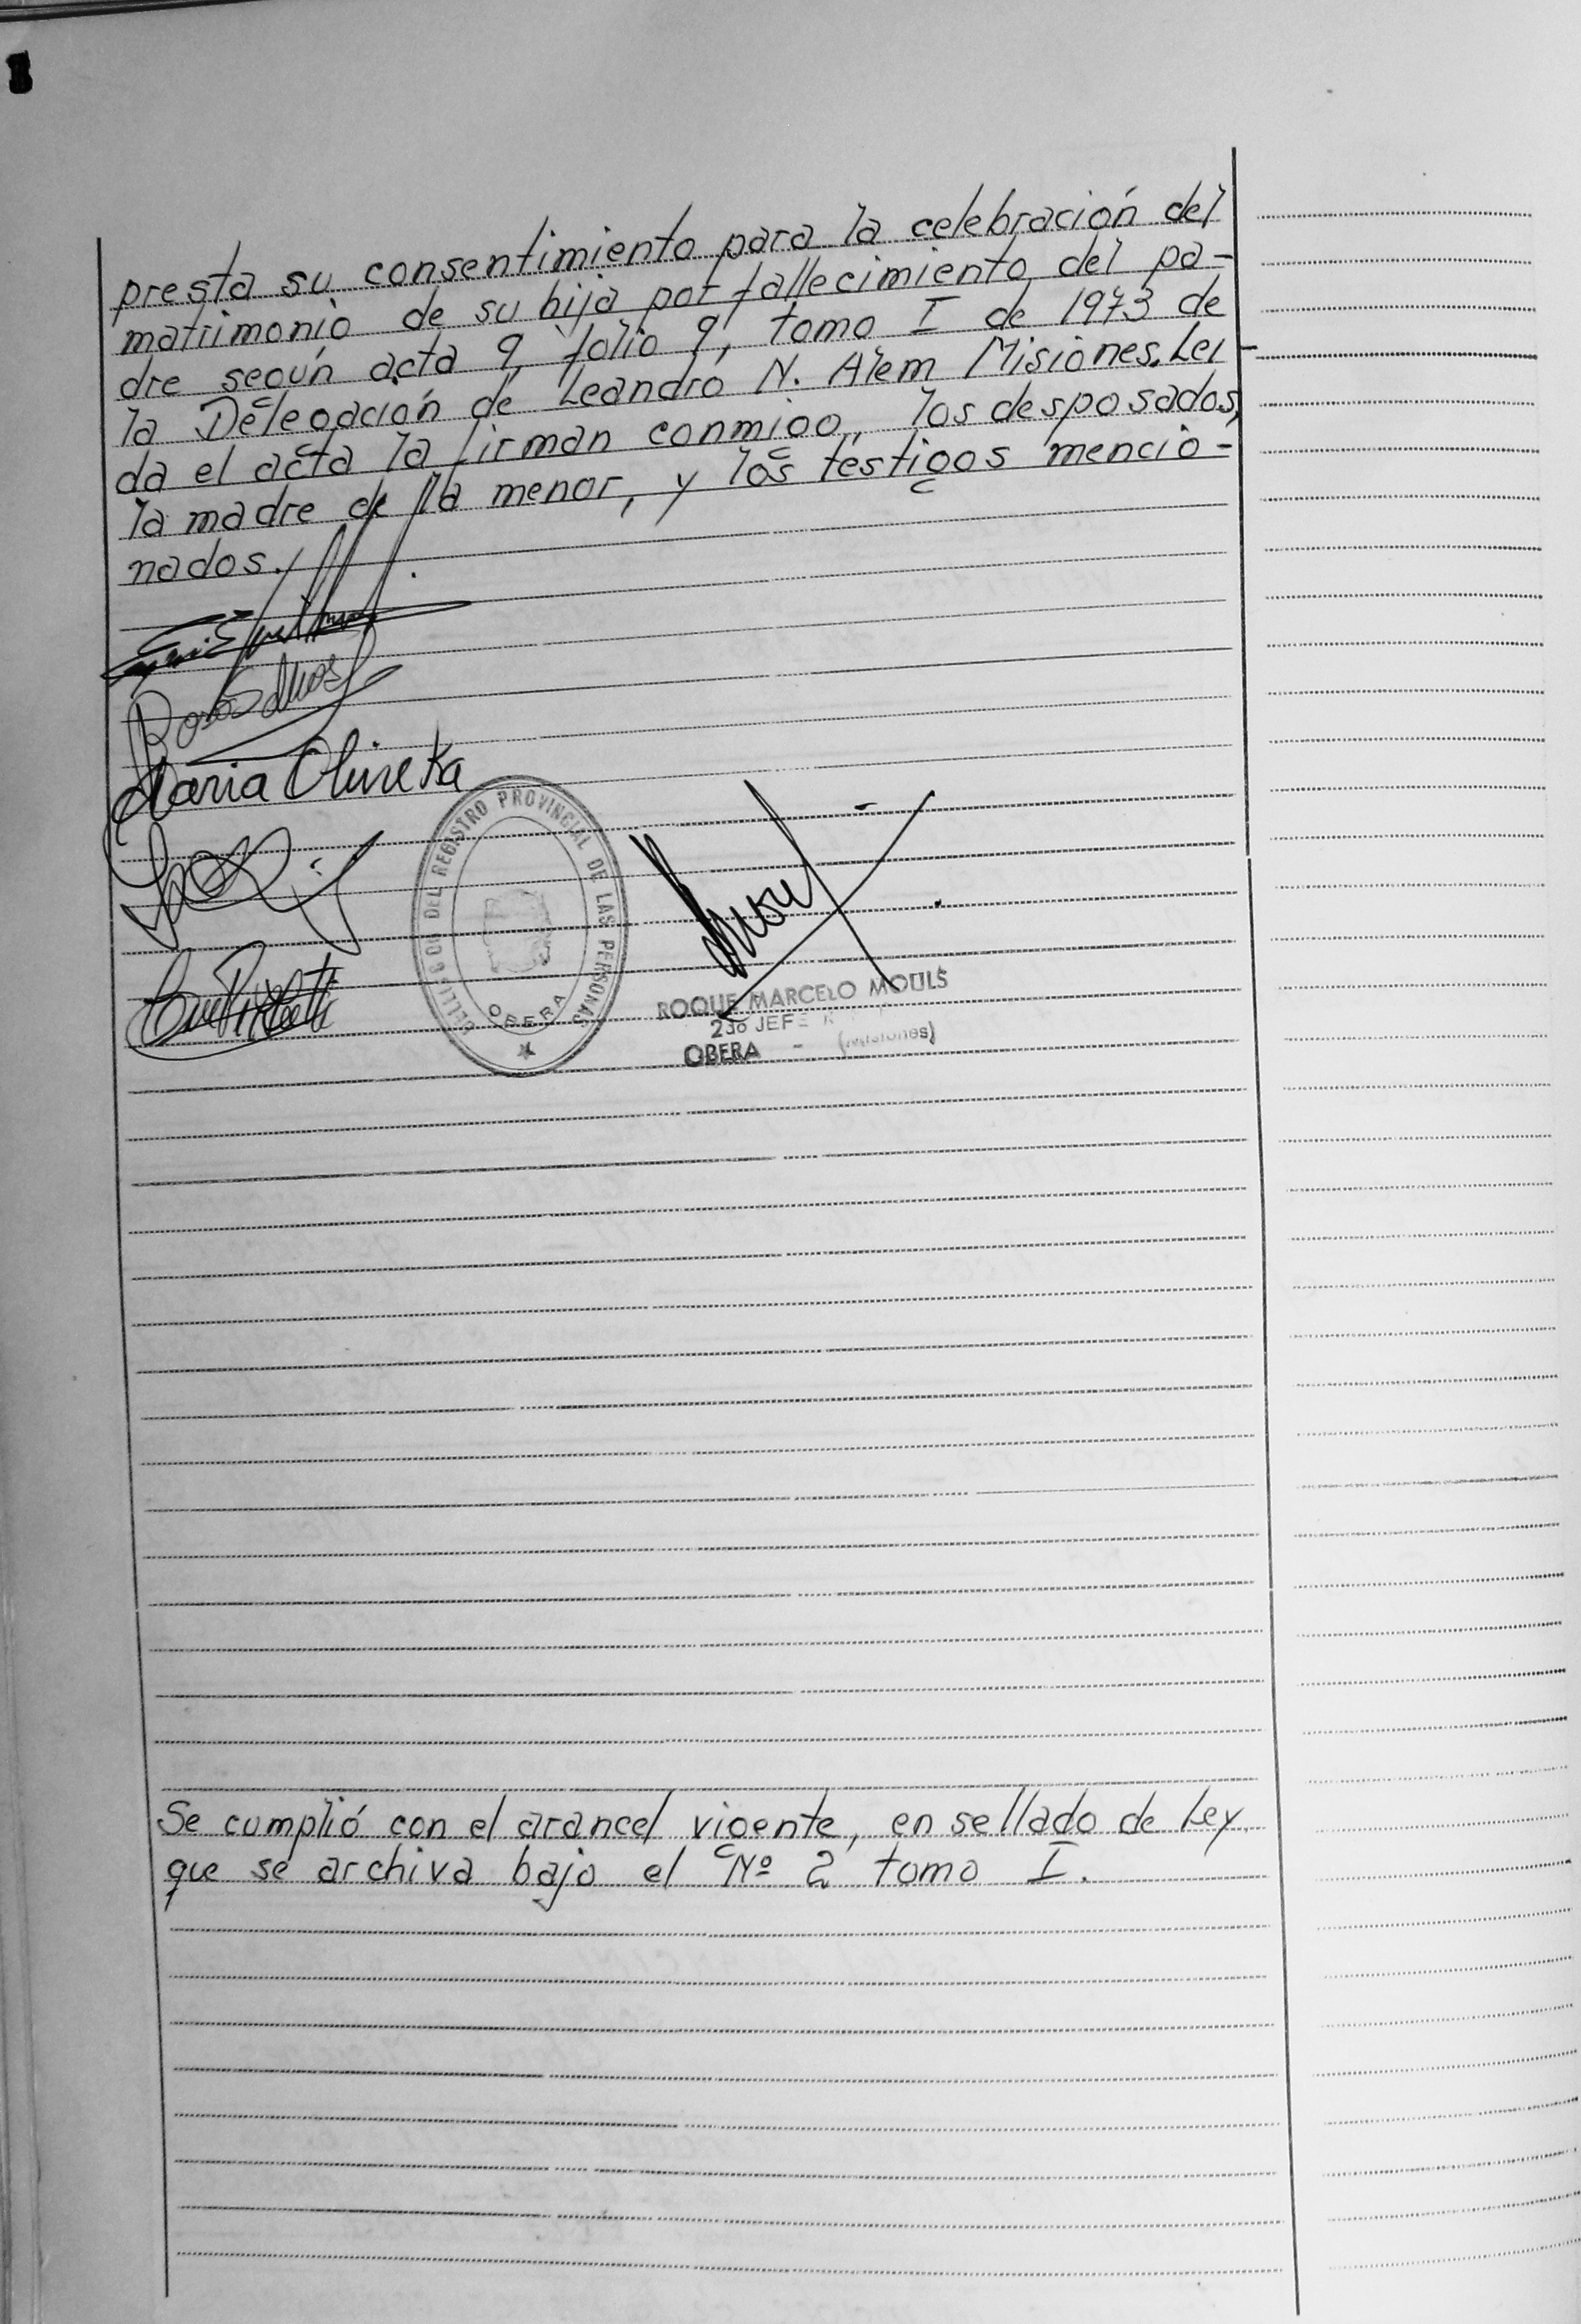 presta su consentimiento para la celebración del
matrimonio de su hija por fallecimiento del pa-
dre según acta 9, folio 9, tomo I de 1973 de
la Delegación de Leandro N. Alem Misiones. Leí-
da el acta la firman conmigo, los desposados,
la madre de la menor, y los testigos mencio-
nados.
Maria Olireka
DEL REGISTRO PROVINCIAL DE LAS PERSONAS
OBERA
ROQUE MARCELO MOULS
2do JEFE
OBERA - (Misiones)
Se cumplió con el arancel vigente, en sellado de Ley
que se archiva bajo el Nº 2 tomo I.